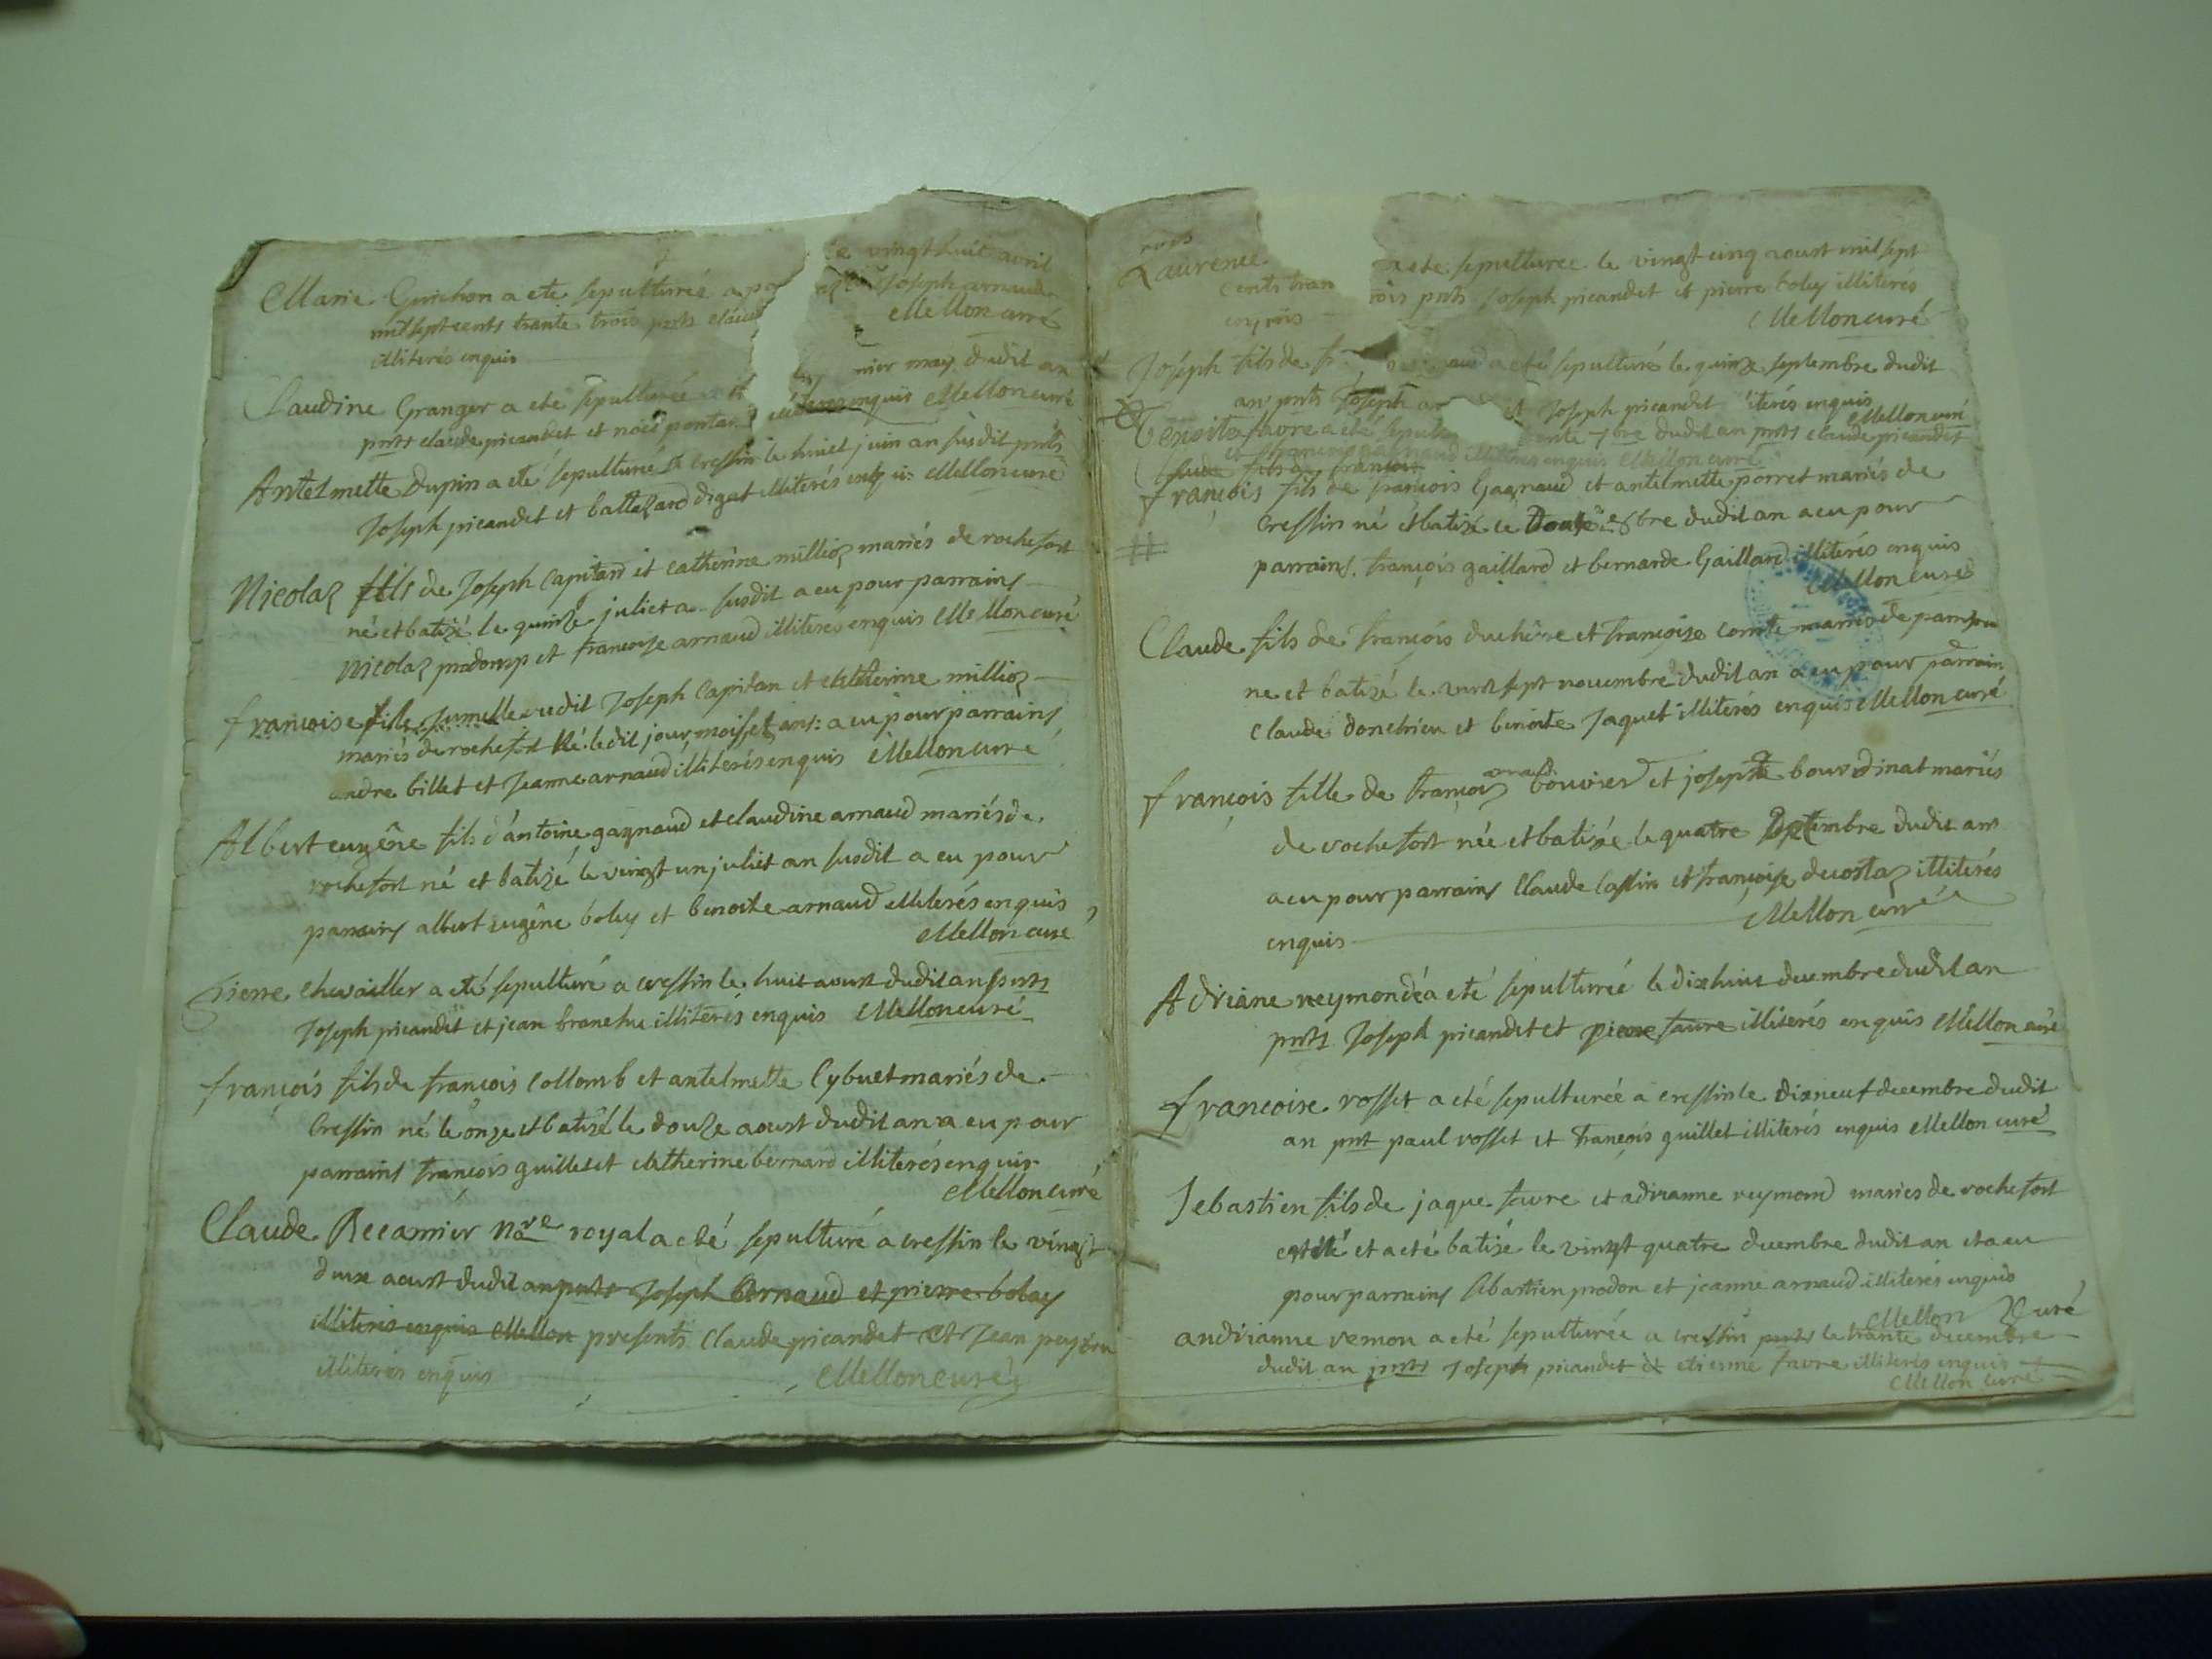 Marie Guichon a ete sepulturée a le vingt huit avril
mil sept cents trante trois pnts Joseph arnaud
illiterés enquis Mellon curé
Claudine Granger a eté sepulturée may dudit an
pnts claude picandet et enquis Mellon curé
Antelmette Dupin a eté sepulturée a cressin le huict juin an susdit pnts
Joseph picandet et baltazard digat illiterés enquis Mellon curé
Nicolas fils de Joseph Capitan et catherine millioz mariés de rochefort
né et batizé le quinze juliet an susdit a eu pour parrains
nicolas prodomp et francoise arnaud illiteres enquis Mellon curé
francoise fille Jumelle dudit Joseph Capitan et Catherine millioz
mariés de rochefort né ledit jour, mois et ans: a eu pour parrains
andre billet et Jeanne arnaud illiterés enquis Mellon curé
Albert eugêne fils d'antoine gagnaud et claudine arnaud mariés de
rochefort né et batizé le vingt un juliet an susdit a eu pour
parrains albert eugêne boley et benoite arnaud illiterés enquis
Mellon curé
Pierre Chevailler a eté sepulturé a cressin le huit aoust dudit an pnts
Joseph picandet et jean illiterés enquis Mellon curé
françois fils de françois Collomb et antelmette Cybuet mariés de
Cressin né le onze et batizé le douze aoust dudit an a eu pour
parrains françois guillet et Catherine bernard illiterés enquis
Mellon curé
Claude Recamier nre royal a eté sepulturé a cressin le vingt
deux aoust dudit an pnts Joseph Arnaud et pierre boley
illiterés enquis Mellon presents Claude picandet et Jean
illiterés enquis Mellon curé
Laurence a ete sepulturee le vingt cinq aoust mil sept
cents tran rois pnts Joseph picandet et pierre boley illiterés
enquis Mellon curé
Joseph fils de a eté sepulturé le quinze septembre dudit
an pnts Joseph ar et Joseph picandet enquis
Mellon curé
Benoite favre a eté sepul dudit an pnts claude picandet
et francois gagnaud illiteres enquis Mellon curé
Claude fils de francois
françois fils de françois Gagnaud et antelmette porret mariés de
Cressin né et batizé le Douze 8bre dudit an a eu pour
parrains françois gaillard et bernarde Gaillard illiterés enquis
Mellon curé
Claude fils de françois duchêne et françoise comte mariés de
ne et batizé le vint sept novembre dudit an a eu pour parrain
Claude et benoite Jaquet illiterés enquis Mellon curé
françois fille de françois bouvier et josephte bourdinat mariés
de rochefort née et batizée le quatre dudit an
a eu pour parrains Claude Cassin et françoise decostaz illiterés
enquis Mellon curé
Adriane reymond a eté sepulturée le dixhuit decembre dudit an
pnts Joseph picandet et pierre favre illiterés enquis Mellon curé
francoise rosset a eté sepulturée a cressin le dixneuf decembre dudit
an pnt paul rosset et françois guillet illiterés enquis Mellon curé
Sebastien fils de jaque favre et adrianne reymond mariés de rochefort
est né et a eté batizé le vingt quatre decembre dudit an et a eu
pour parrains Sebastien prodon et jeanne arnaud illiterés enquis
Mellon Curé
andrianne remon a eté sepulturée a cressin pnts le trante decembre
dudit an pnts Joseph picandet et etienne favre illiterés enquis
Mellon curé